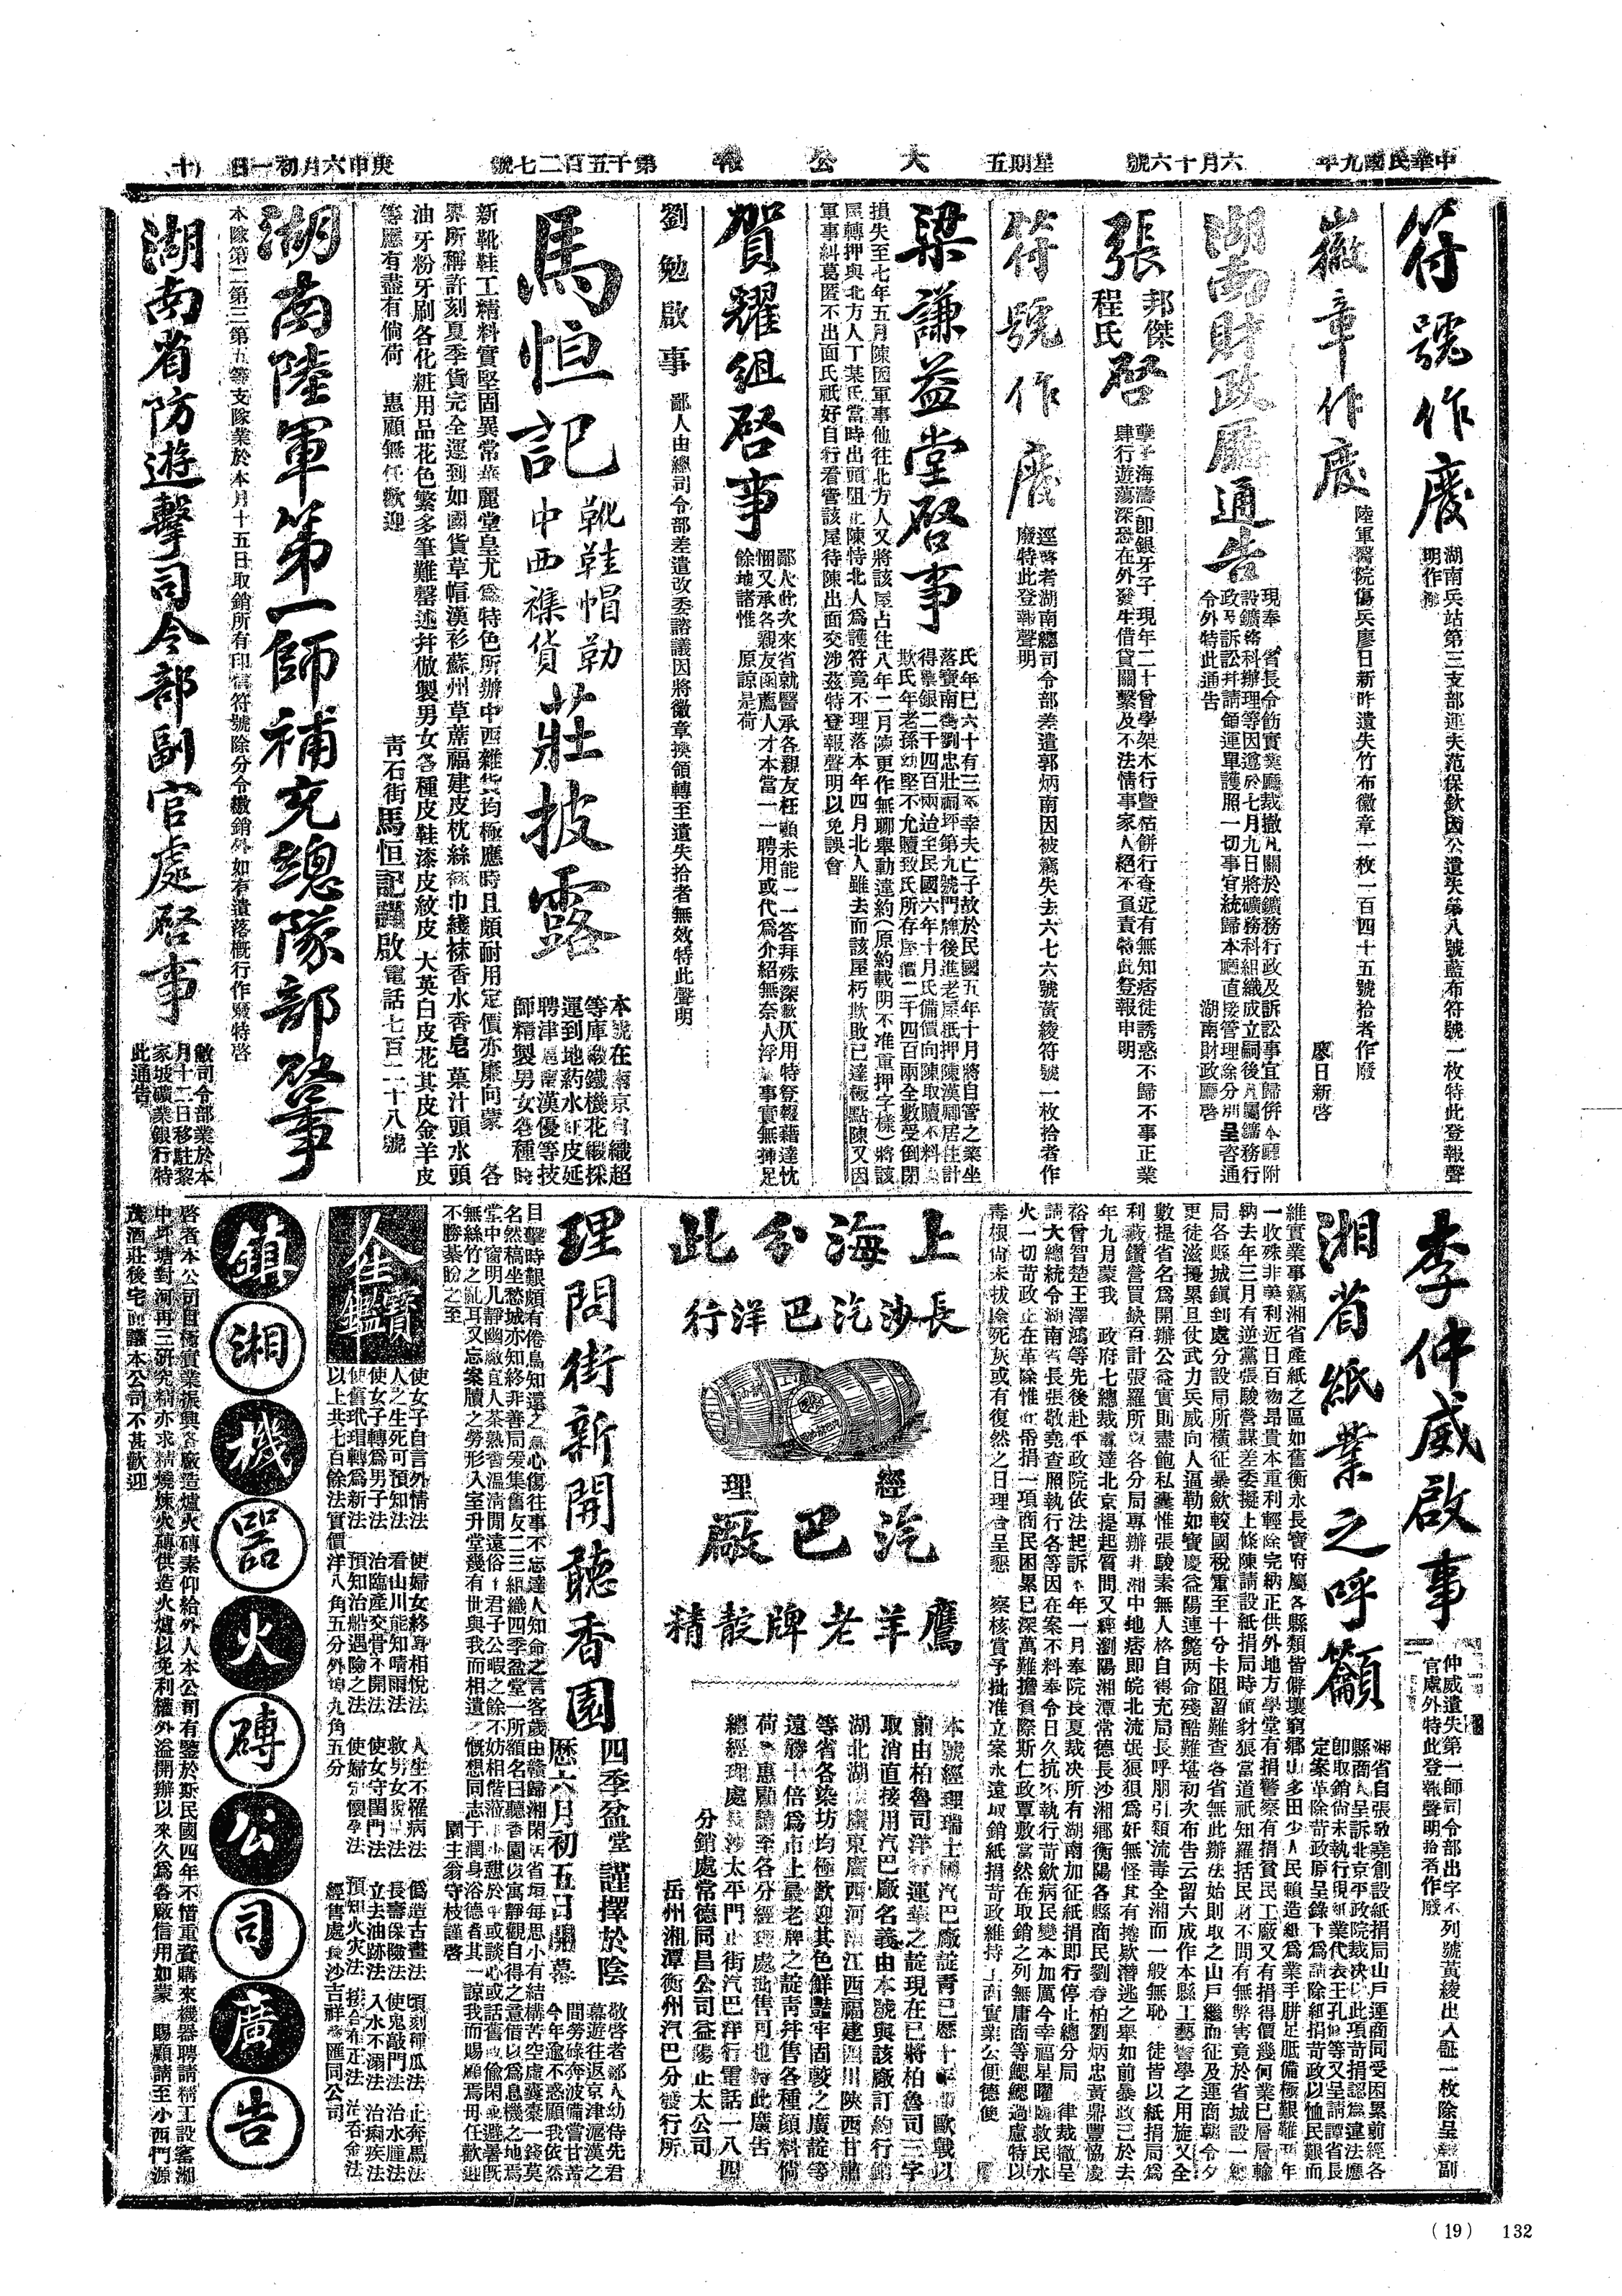 中華民國九年
六月十六號
星期五
大公報
第千五百二七號
庚申六月初一日
符號作廢
湖南兵站第三支部運夫范保欽因公遺失第八號藍布符號一枚特此登報聲
明作廢
徽章作廢
陸軍醫院傷兵廖日新昨遺失竹布徽章一枚一百四十五號拾者作廢
廖日新啓
湖南財政廳通告
現奉 省長令飭實業廳裁撤凡關於鑛務行政及訴訟事宜歸併本廳附
設鑛務科辦理等因遵於七月九日將礦務科組織成立嗣後凡屬鑛務行
政及訴訟并請領運單護照一切事宜統歸本廳直接管理除分別呈咨通
令外特此通告
湖南財政廳啓
張邦傑程氏啓
孽子海濤(卽銀牙子)現年二十曾學架木行曁枯餅行查近有無知痞徒誘惑不歸不事正業
肆行遊蕩深恐在外發生借貸關繫及不法情事家人絕不負責特此登報申明
符號作廢
逕啓者湖南總司令部差遣郭炳南因被竊失去六七六號黃綾符號一枚拾者作
廢特此登報聲明
梁謙益堂啓事
氏年巳六十有三不幸夫亡子故於民國五年十月將自管之業坐
落寶南街劉忠壯祠坪第九號門牌後進老屋紙押陳漢卿居住計
得業銀二千四百兩迨至民國六年十月氏備價向陳取贖不料
欺氏年老孫幼堅不允贖致氏所存屋價二千四百兩全數受倒閉
損失至七年五月陳因軍事他往北方人又將該屋占住八年二月陳更作無聊舉動違約(原約載明不准重押字樣)將該
屋轉押與北方人丁某氏當時出頭阻止陳恃北人爲護符竟不理落本年四月北人雖去而該屋朽欺敗已達極點陳又因
軍事糾葛匿不出面氏祇好自行看管該屋待陳出面交涉茲特登報聲明以免誤會
賀耀組啓事
鄙人此次來省就醫承各親友枉顧未能一一答拜殊深歉仄用特登報藉達忱
悃又承各親友函薦人才本當一一聘用或代爲介紹無奈人浮於事實無揷足
餘地諸惟 原諒是荷
劉勉啟事
鄙人由總司令部差遣改委諮議因將徽章換領轉至遺失拾者無效特此聲明
馬恒記
靴鞋帽勒
中西襍貨
莊披露
本號在南京自織超
等庫緞鐵機花緞採
運到地葯水紅皮延
聘津滬甯漢優等技
師精製男女各種時
新靴鞋工精料實堅固異常華麗堂皇尤爲特色所辦中西雜貨均極應時且頗耐用定價亦廉向蒙 各
界所稱許刻夏季貨完全運到如國貨草帽漢衫蘇州草蓆福建皮枕絲葛巾綫袜香水香皂菓汁頭水頭
油牙粉牙刷各化粧用品花色繁多筆難罄述并倣製男女各種皮鞋漆皮紋皮 大英白皮花其皮金羊皮
等應有盡有倘荷 惠顧無任歡迎
靑石街馬恒記謹啟電話七百二十八號
湖南陸軍第一師補充總隊部啓事
本隊第二第三第五等支隊業於本月十五日取銷所有印信符號除分令繳銷外如有遺落槪行作廢特啓
湖南省防遊擊司令部副官處啓事
敝司令部業於本
月十二日移駐黎
家坡礦業銀行特
此通告
李仲威啟事
仲威遺失第一師司令部出字不列號黃綾出入証一枚除呈報副
官處外特此登報聲明拾者作廢
湘省紙業之呼籲
湘省自張敬堯創設紙捐局山戶運商同受困累前經各
縣商人呈訴北京平政院裁决以此項苛捐認爲違法應
卽取銷尙未執行現紙業代表王孔 等又呈請譚省長
定案革除苛政原呈錄下爲請除紙捐苛政以恤民艱而
維實業事竊湘省產紙之區如舊衡永長寶府屬各縣類皆僻壤窮鄉山多田少人民賴造紙爲業手胼足胝備極艱難
一收殊非義利近日百物昂貴本重利輕除完納正供外地方學堂有捐警察有捐貧民工廠又有捐得價幾何業已層層輸
納去年三月有逆黨張駿營謀差委擬上條陳請設紙捐局時値豺狼當道祇知羅括民財不問有無弊害竟於省城設一總
局各縣城鎭到處分設局所橫征暴歛較國稅重至十分卡阻留難查各省無此辦法始則取之山戶繼而征及運商朝令夕
更徒滋擾累且仗武力兵威向人逼勒如寶慶益陽連斃两命殘酷難堪初次布告云留六成作本縣工藝醫學之用旋又全
數提省名爲開辦公益實則盡飽私囊惟張駿素無人格自得充局長呼朋引類流毒全湘而一般無恥 徒皆以紙捐局爲
利薮鑽營買缺百計張羅所以各分局專辦非湘中地痞即皖北流氓狼狽爲奸無怪其有捲欵潛逃之舉如前暴政已於去
年九月蒙我 政府七總裁電達北京提起質問又經瀏陽湘潭常德長沙湘鄉衡陽各縣商民劉春柏劉炳忠黃鼎豐協慶
裕曾智楚王澤鴻等先後赴平政院依法起訴本年一月奉院長夏裁决所有湖南加征紙捐即行停止總分局 律裁撤呈
請大總統令湖南省長張敬堯查照執行各等因在案不料奉令日久抗不執行苛歛病民變本加厲今幸福星曜臨救民水
火一切苛政正在革除惟紙昏捐一項商民困累已深萬難擔負際斯仁政覃敷當然在取銷之列無庸商等鰓鰓過慮特以
毒根尙未拔除死灰或有復然之日理合呈懇 察核賞予批准立案永遠取銷紙捐苛政維持上商實業公便德便
上海分此
長沙汽巴洋行
經理
汽巴廠
鷹羊老牌靛精
本號經理瑞士國汽巴廠靛靑已歷十 歐戰以
前由柏魯司洋行運華之靛現在已將柏魯司三字
取消直接用汽巴廠名義由本號與該廠訂約行銷
湖北湖南廣東廣西河南江西福建四川陝西甘肅
等省各染坊均極歡迎其色鮮豔牢固較之廣靛等
遠勝十倍爲市上最老牌之靛靑并售各種顏料倘
荷 惠顧請至各分經理處批售可也特此廣告
總經理處長沙太平門正街汽巴洋行電話一八四
分銷處常德同昌公司益陽正太公司
岳州湘潭衡州汽巴分發行所
理問街新開聽香園
四季盆堂謹擇於陰
歷六月初五日開幕
敬啓者鄙人幼侍先君
幕遊往返京津滬漢之
間勞碌奔波備嘗甘苦
今年逾不惑願我依然
目擊時艱頗有倦鳥知還之意心傷往事不忘達人知命之言客歲由贛歸湘閑居省垣每思小有結構苦空虛囊橐一錢莫
名然稿坐愁城亦知終非善局爰集舊友二三組織四季盆堂一所額名曰聽香園以寓靜觀自得之意借以爲息機之地焉
堂中窗明几靜幽廠宜人茶熟香溫淸閒遠俗 君子公暇之餘不妨相偕蒞止小憇於此或談心或話舊或偷閑或避暑旣
無絲竹之亂耳又忘案牘之勞形入室升堂幾有世與我而相遺之慨想同志于潤身浴德者其一諒我而賜顧焉毋任歡迎
不勝綦盼之至
園主翁守枝謹啓
全寶鑑
使女子自言外情法
使婦女終身相悅法
人生不罹病法
人之生死可預知法
看山川能知晴雨法
使女子轉爲男子法
治臨產交骨不開法
使女守閨門法
使舊玳瑁轉爲新法
預知治船遇險之法
以上共七百餘法實價洋八角五分外埠九角五分
僞造古畫法
頃刻種瓜法
止奔馬法
長壽保險法
使鬼敲門法
治水腫法
立去油跡法
入水不溺法
治痢疾法
預知火災法
經售處長沙吉祥巷匯同公司
鎮湘機器火磚公司廣告
啓者本公司目極實業振興各廠造爐火磚素仰給外人本公司有鑒於斯民國四年不惜重資購來機器聘請精工設窰湘
中坪塘對河再三研究精亦求精燒煉火磚供造火爐以免利權外溢開辦以來久爲各廠信用如蒙 賜顧請至小西門源
茂酒莊後宅面議本公司不甚歡迎
(19) 132